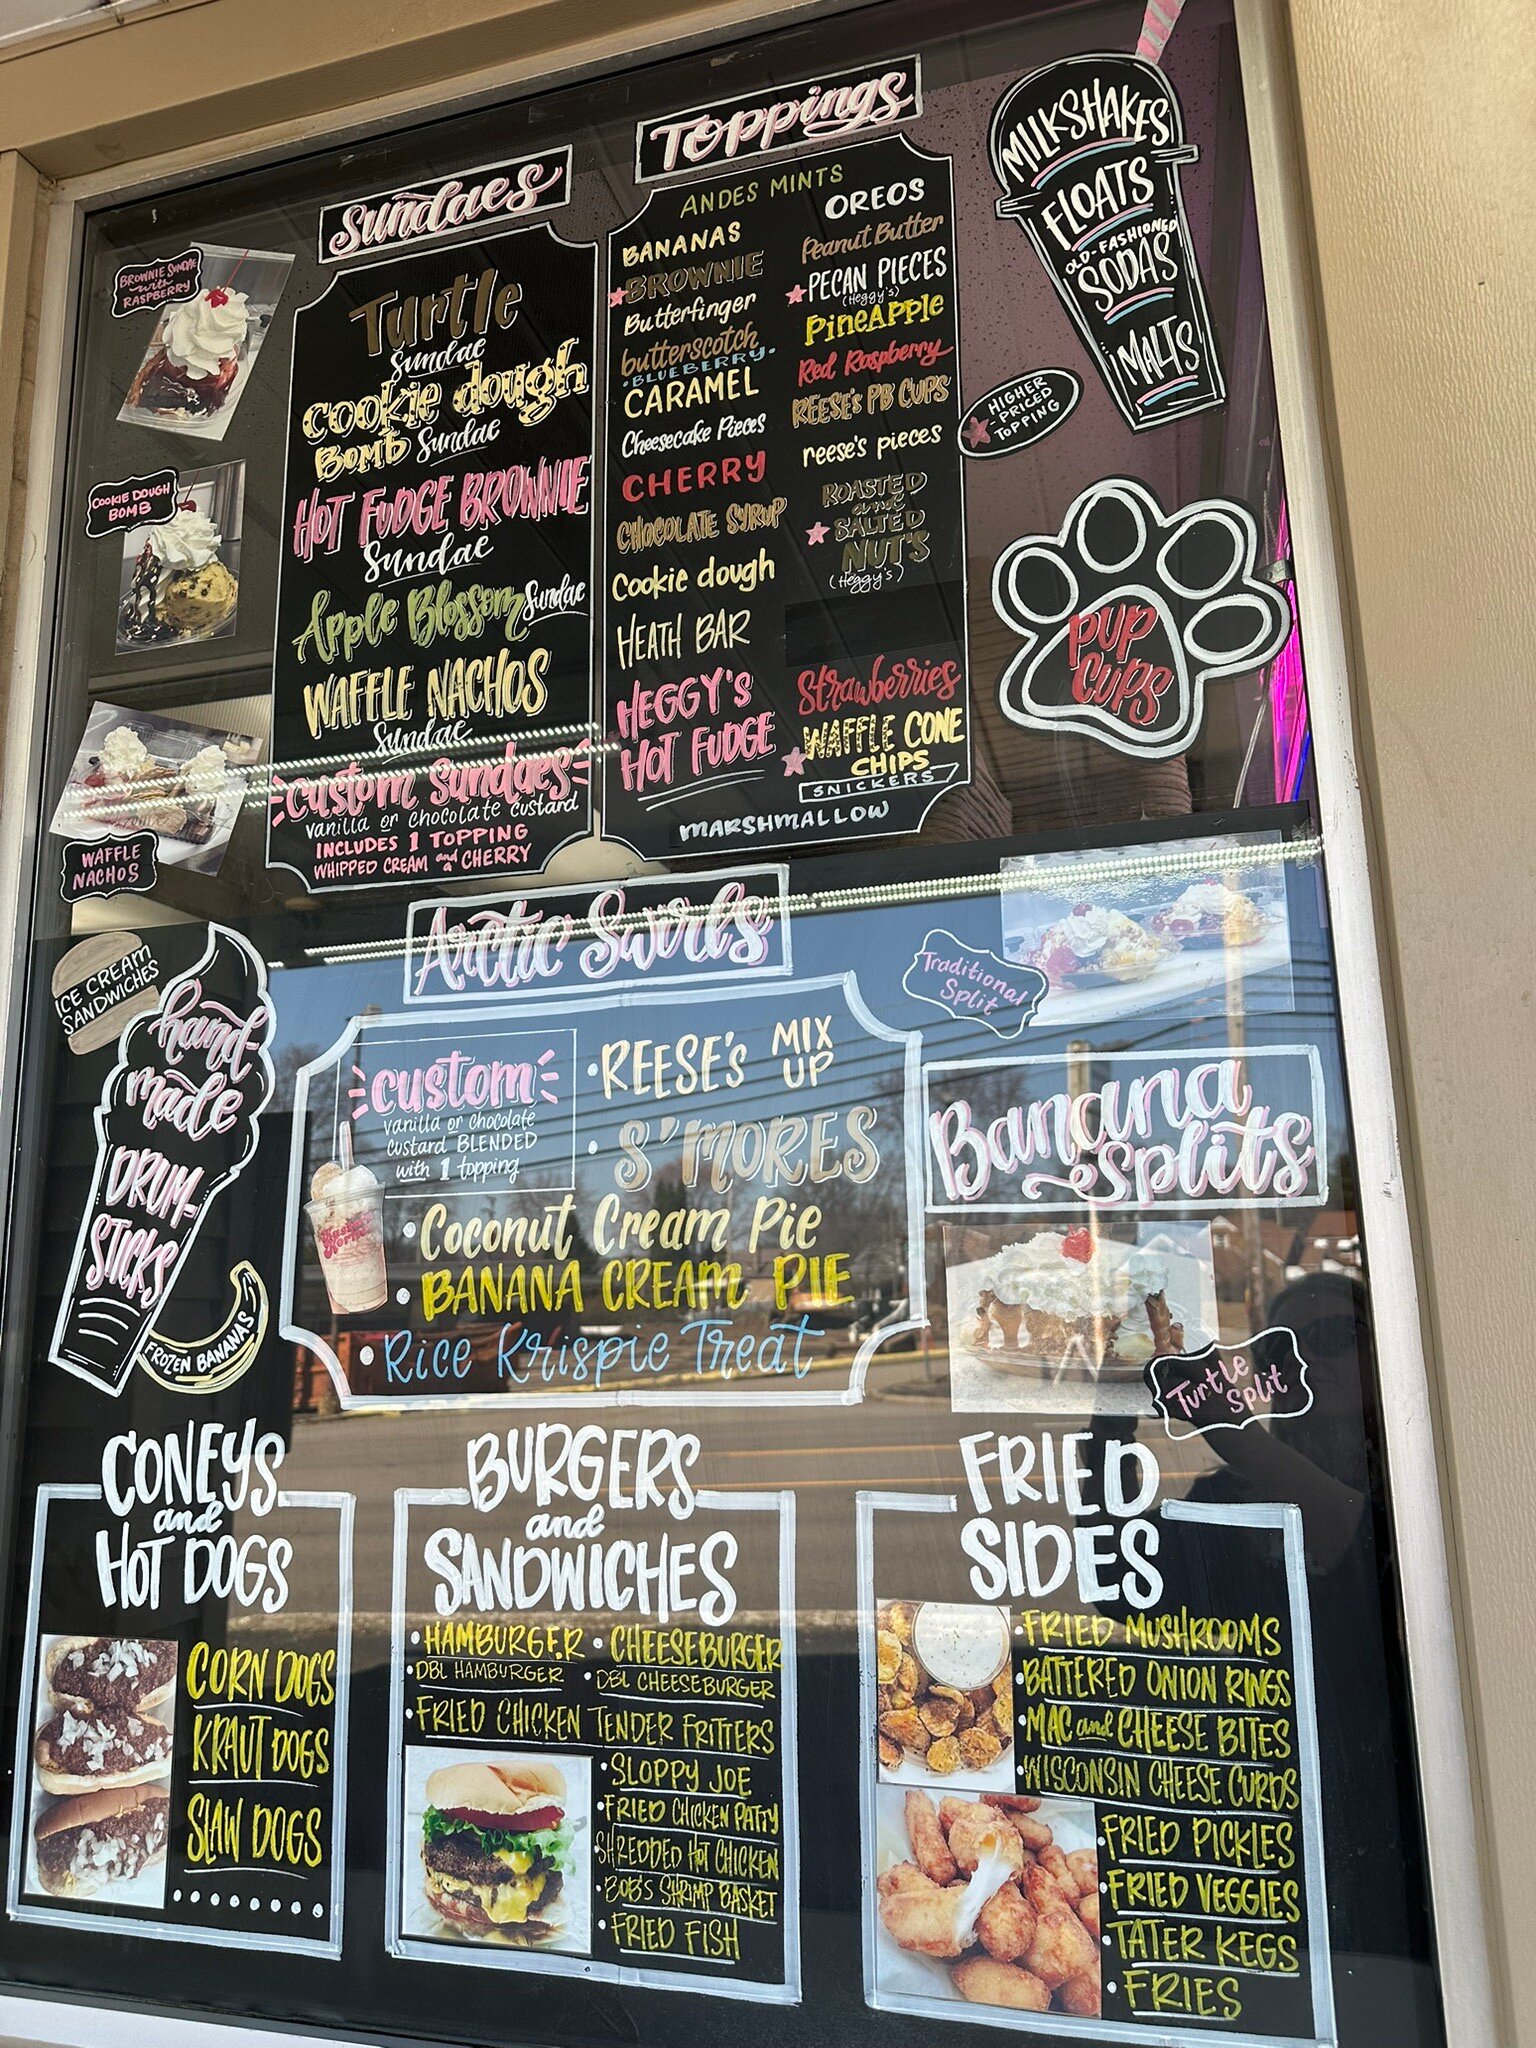 Sundaes
BROWNIE SUNDAE
with
RASPBERRY
COOKIE DOUGH
BOMB
WAFFLE
NACHOS
Turtle
Sundae
cookie dough
BOMB Sundae
HOT FUDGE BROWNIE
Sundae
Apple Blossom Sundae
WAFFLE NACHOS
Sundae
Custom Sundaes
vanilla or chocolate custard
INCLUDES 1 TOPPING
WHIPPED CREAM and a CHERRY
Toppings
ANDES MINTS
BANANAS
BROWNIE
Butterfinger
butterscotch
BLUEBERRY
CARAMEL
Cheesecake Pieces
CHERRY
CHOCOLATE SYRUP
Cookie dough
HEATH BAR
HEGGY'S
HOT FUDGE
OREOS
Peanut Butter
PECAN PIECES
(Heggy's)
PineAPPle
Red Raspberry
REESE's PB CUPS
reese's pieces
ROASTED
and
SALTED
NUT'S
(Heggy's)
Strawberries
WAFFLE CONE
CHIPS
SNICKERS
MARSHMALLOW
MILKSHAKES
FLOATS
OLD-FASHIONED
SODAS
MALTS
HIGHER
-PRICED
TOPPING
PUP
CUPS
ICE CREAM
SANDWICHES
hand-
made
DRUM-
STICKS
FROZEN BANANAS
Arctic Swirls
custom
vanilla or chocolate
custard BLENDED
with 1 topping
• REESE's MIX
UP
• S'MORES
• Coconut Cream Pie
• BANANA CREAM PIE
• Rice Krispie Treat
Traditional
Split
Banana
splits
Turtle
Split
CONEYS
and
HOT DOGS
CORN DOGS
KRAUT DOGS
SLAW DOGS
BURGERS
and
SANDWICHES
• HAMBURGER • CHEESEBURGER
• DBL HAMBURGER • DBL CHEESEBURGER
• FRIED CHICKEN TENDER FRITTERS
• SLOPPY JOE
• FRIED CHICKEN PATTY
• SHREDDED HOT CHICKEN
• BOB'S SHRIMP BASKET
• FRIED FISH
FRIED
SIDES
• FRIED MUSHROOMS
• BATTERED ONION RINGS
• MAC and CHEESE BITES
• WISCONSIN CHEESE CURDS
• FRIED PICKLES
• FRIED VEGGIES
• TATER KEGS
• FRIES